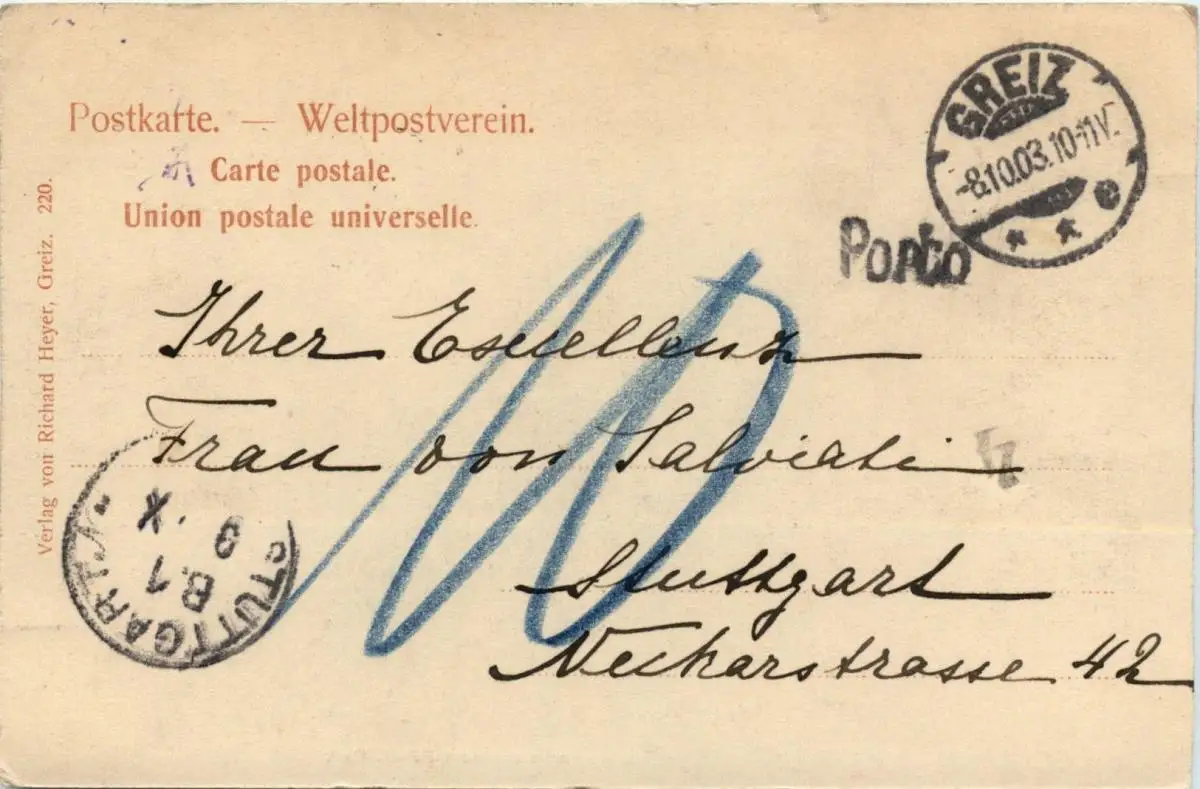 Postkarte. — Weltpostverein.
Carte postale.
Union postale universelle.
Verlag von Richard Heyer, Greiz. 220.
GREIZ
-8.10.03.10-11V.
* * e
Porto
10
Ihrer Excellenz
Frau von Salviati
Stuttgart
Neckarstrasse 42
STUTTGART
B.1
9 . X